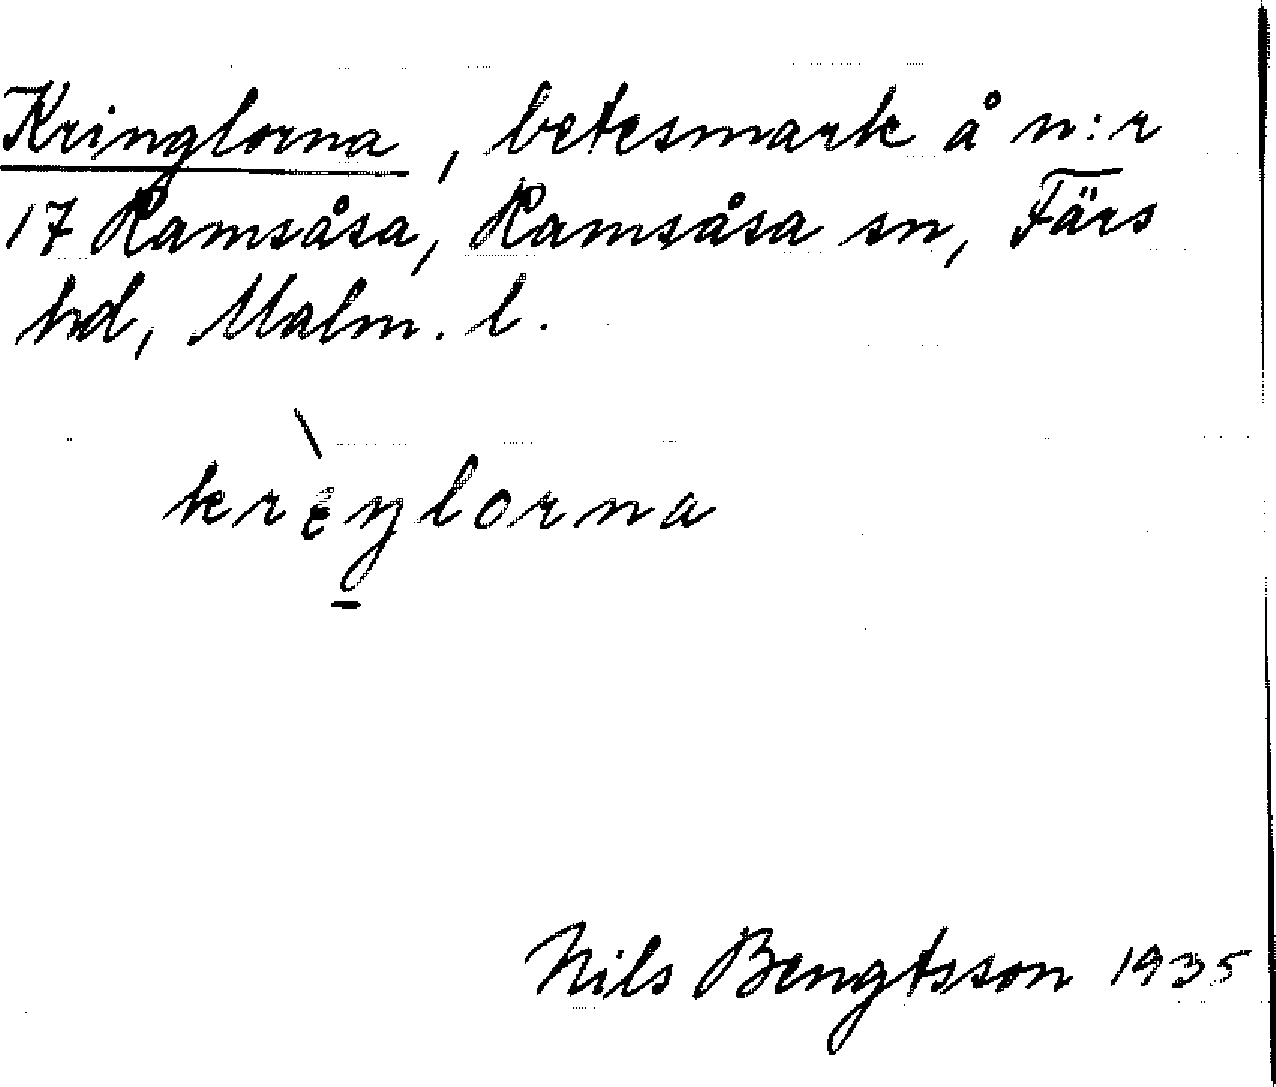 Kringlorna, betesmark å n:r
17 Ramsåsa, Ramsåsa sn, Färs
hd, Malm. l.
krɛ̀ŋlorna
Nils Bengtsson 1935